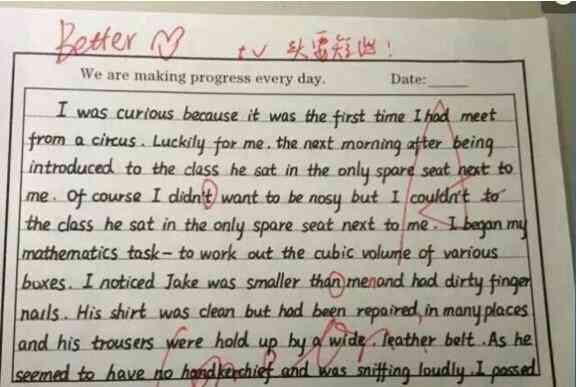 Better
tv 头要短出!
We are making progress every day. Date:
I was curious because it was the first time I had meet
from a circus. Luckily for me, the next morning after being
introduced to the class he sat in the only spare seat next to
me. Of course I didn't want to be nosy but I couldn't to
the class he sat in the only spare seat next to me. I began my
mathematics task - to work out the cubic volume of various
boxes. I noticed Jake was smaller than menand had dirty finger
nails. His shirt was clean but had been repaired in many places
and his trousers were hold up by a wide, leather belt. As he
seemed to have no handkerchief and was sniffing loudly. I passed